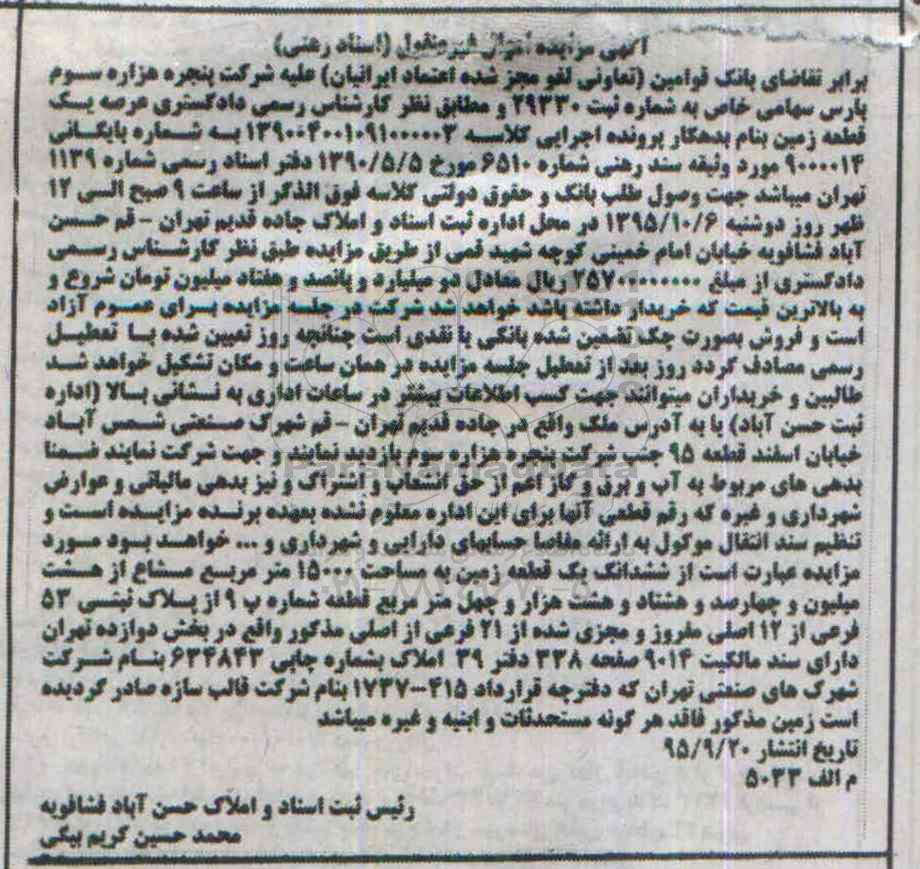 آگهی مزایده اموال غیرمنقول (اسناد رهنی)
برابر تقاضای بانک قوامین (تعاونی لغو مجز شده اعتماد ایرانیان) علیه شرکت پنجره هزاره سوم
پارس سهامی خاص به شماره ثبت ۲۹۳۳۰ و مطابق نظر کارشناس رسمی دادگستری عرصه یک
قطعه زمین بنام بدهکار پرونده اجرایی کلاسه ۱۳۹۰۰۴۰۰۱۰۹۱۰۰۰۰۰۳ به شماره بایگانی
۹۰۰۰۰۱۴ مورد وثیقه سند رهنی شماره ۶۵۱۰ مورخ ۱۳۹۰/۵/۵ دفتر اسناد رسمی شماره ۱۱۳۹
تهران میباشد جهت وصول طلب بانک و حقوق دولتی کلاسه فوق الذکر از ساعت ۹ صبح الی ۱۲
ظهر روز دوشنبه ۱۳۹۵/۱۰/۶ در محل اداره ثبت اسناد و املاک جاده قدیم تهران - قم حسن
آباد فشافویه خیابان امام خمینی کوچه شهید قمی از طریق مزایده طبق نظر کارشناس رسمی
دادگستری از مبلغ ۲۵۷۰۰۰۰۰۰۰۰ ریال معادل دو میلیارد و پانصد و هفتاد میلیون تومان شروع و
به بالاترین قیمت که خریدار داشته باشد خواهد شد شرکت در جلسه مزایده برای عموم آزاد
است و فروش بصورت چک تضمین شده بانکی یا نقدی است چنانچه روز تعیین شده با تعطیل
رسمی مصادف گردد روز بعد از تعطیل جلسه مزایده در همان ساعت و مکان تشکیل خواهد شد
طالبین و خریداران میتوانند جهت کسب اطلاعات بیشتر در ساعات اداری به نشانی بالا (اداره
ثبت حسن آباد) یا به آدرس ملک واقع در جاده قدیم تهران - قم شهرک صنعتی شمس آباد
خیابان اسفند قطعه ۹۵ جنب شرکت پنجره هزاره سوم بازدید نمایند و جهت شرکت نمایند ضمنا
بدهی های مربوط به آب و برق و گاز اعم از حق انشعاب و اشتراک و نیز بدهی مالیاتی و عوارض
شهرداری و غیره که رقم قطعی آنها برای این اداره معلوم نشده بعهده برنده مزایده است و
تنظیم سند انتقال موکول به ارائه مفاصا حسابهای دارایی و شهرداری و ... خواهد بود مورد
مزایده عبارت است از ششدانگ یک قطعه زمین به مساحت ۱۵۰۰۰ متر مربع مشاع از هشت
میلیون و چهارصد و هشتاد و هشت هزار و چهل متر مربع قطعه شماره پ ۹ از پلاک ثبتی ۵۳
فرعی از ۱۲ اصلی مفروز و مجزی شده از ۲۱ فرعی از اصلی مذکور واقع در بخش دوازده تهران
دارای سند مالکیت ۹۰۱۴ صفحه ۳۳۸ دفتر ۳۹ املاک بشماره چاپی ۶۳۴۸۴۳ بنام شرکت
شهرک های صنعتی تهران که دفترچه قرارداد ۴۱۵-۱۷۳۷ بنام شرکت قالب سازه صادر گردیده
است زمین مذکور فاقد هر گونه مستحدثات و ابنیه و غیره میباشد
تاریخ انتشار ۹۵/۹/۲۰
م الف ۵۰۳۳
رئیس ثبت اسناد و املاک حسن آباد فشافویه
محمد حسین کریم بیگی